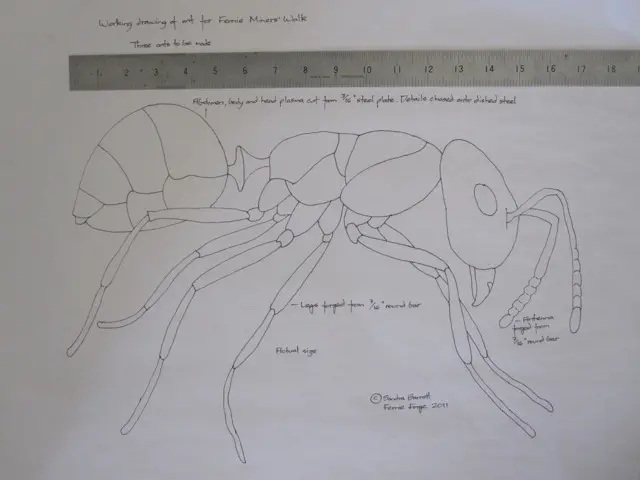 Working drawing of ant for Fernie Miners' Walk
Three ants to be made
1 2 3 4 5 6 7 8 9 10 11 12 13 14 15 16 17 18
Abdomen, body and head plasma cut from 3/16" steel plate. Details chased onto dished steel
Legs forged from 3/16" round bar
Antenna
forged from
3/16" round bar
Actual size
© Sandra Barrett
Fernie Forge 2011